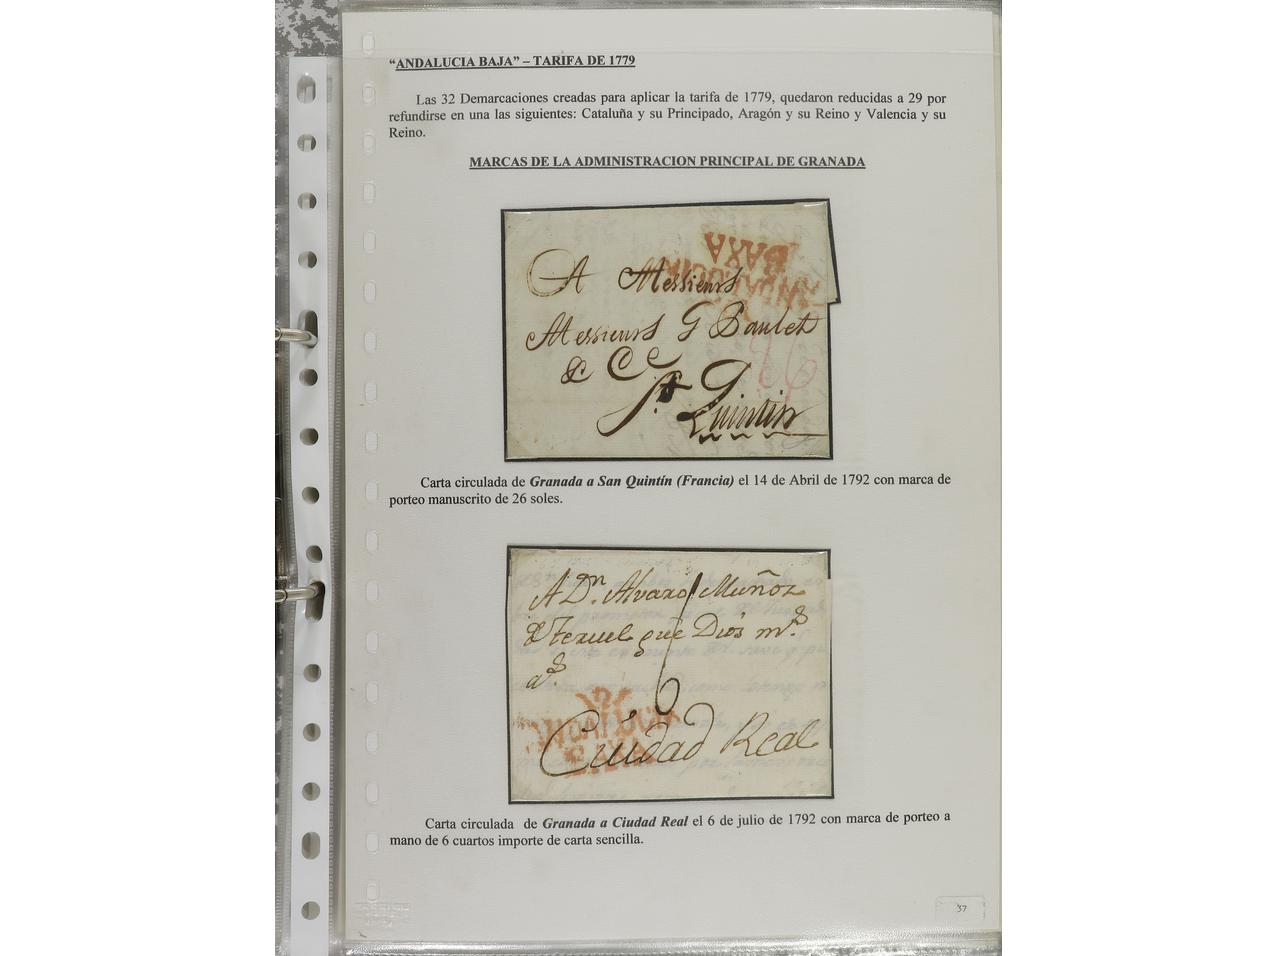 “ANDALUCIA BAJA” – TARIFA DE 1779
Las 32 Demarcaciones creadas para aplicar la tarifa de 1779, quedaron reducidas a 29 por
refundirse en una las siguientes: Cataluña y su Principado, Aragón y su Reino y Valencia y su
Reino.
MARCAS DE LA ADMINISTRACION PRINCIPAL DE GRANADA
ANDALUCIA
BAXA
A Messieurs
Messieurs G Baulet
& Ce
St Quintin
26
Carta circulada de Granada a San Quintín (Francia) el 14 de Abril de 1792 con marca de
porteo manuscrito de 26 soles.
A Dn. Alvaro Muñoz
Teruel que Dios ms.
as.
6
ANDALUCIA
BAXA
Ciudad Real
Carta circulada de Granada a Ciudad Real el 6 de julio de 1792 con marca de porteo a
mano de 6 cuartos importe de carta sencilla.
37